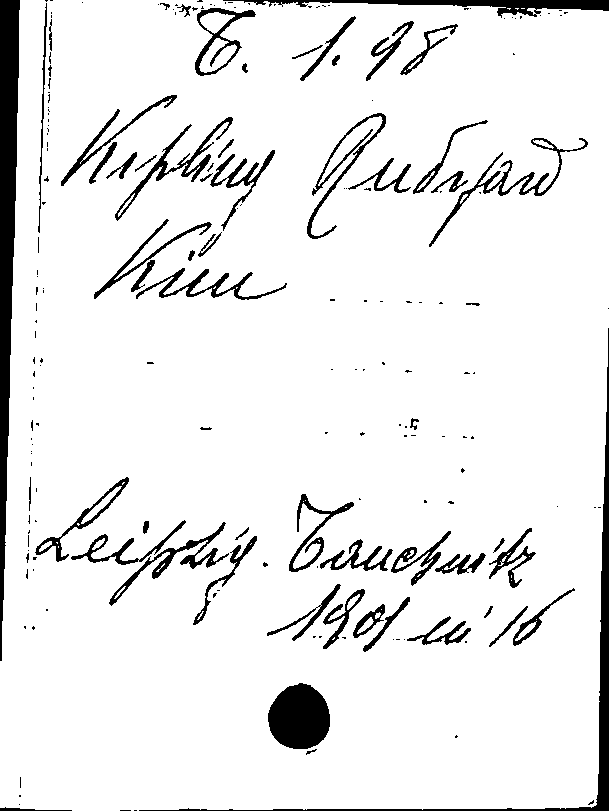 T. 1. 98
Kipling Rudyard
Kim
Leipzig. Tauchnitz
1901 in 16